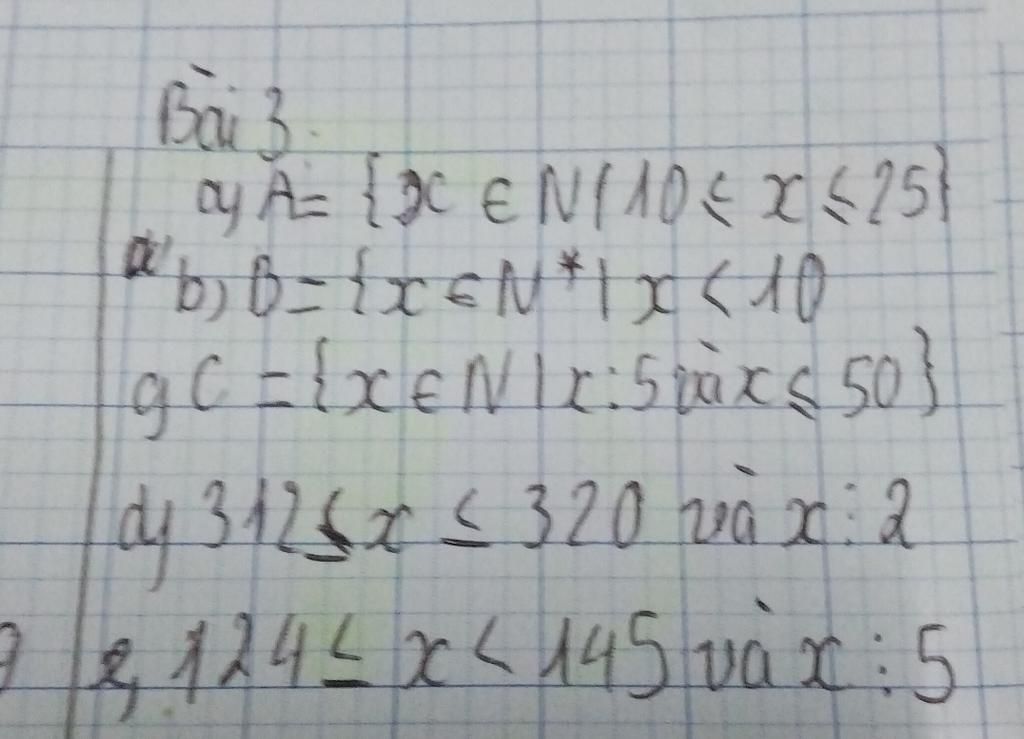 Bài 3.
a) A = {x ∈ N | 10 ≤ x ≤ 25}
b) B = {x ∈ N* | x < 10
c) C = {x ∈ N | x ⋮ 5 và x ≤ 50}
d) 312 ≤ x ≤ 320 và x ⋮ 2
e, 124 ≤ x < 145 và x ⋮ 5